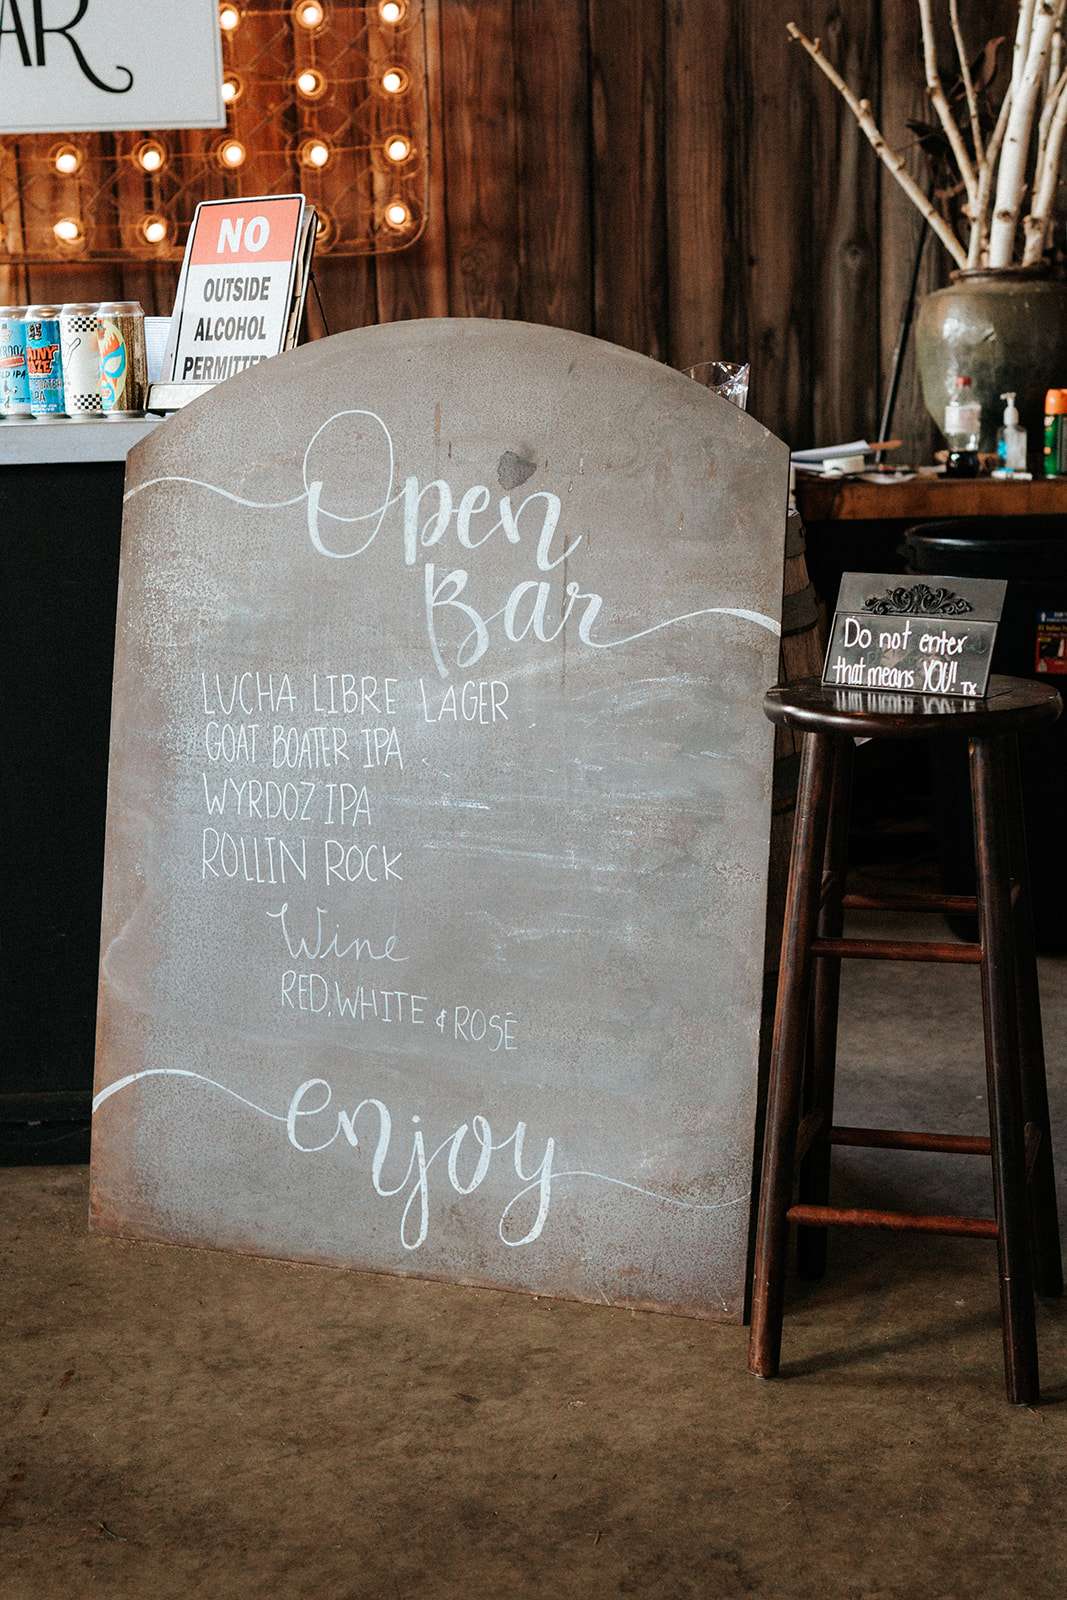 AR
NO
OUTSIDE
ALCOHOL
PERMITTE
Open
Bar
LUCHA LIBRE LAGER
GOAT BOATER IPA
WYRDOZ IPA
ROLLIN ROCK
Wine
RED, WHITE & ROSÉ
enjoy
Do not enter
that means YOU! TX